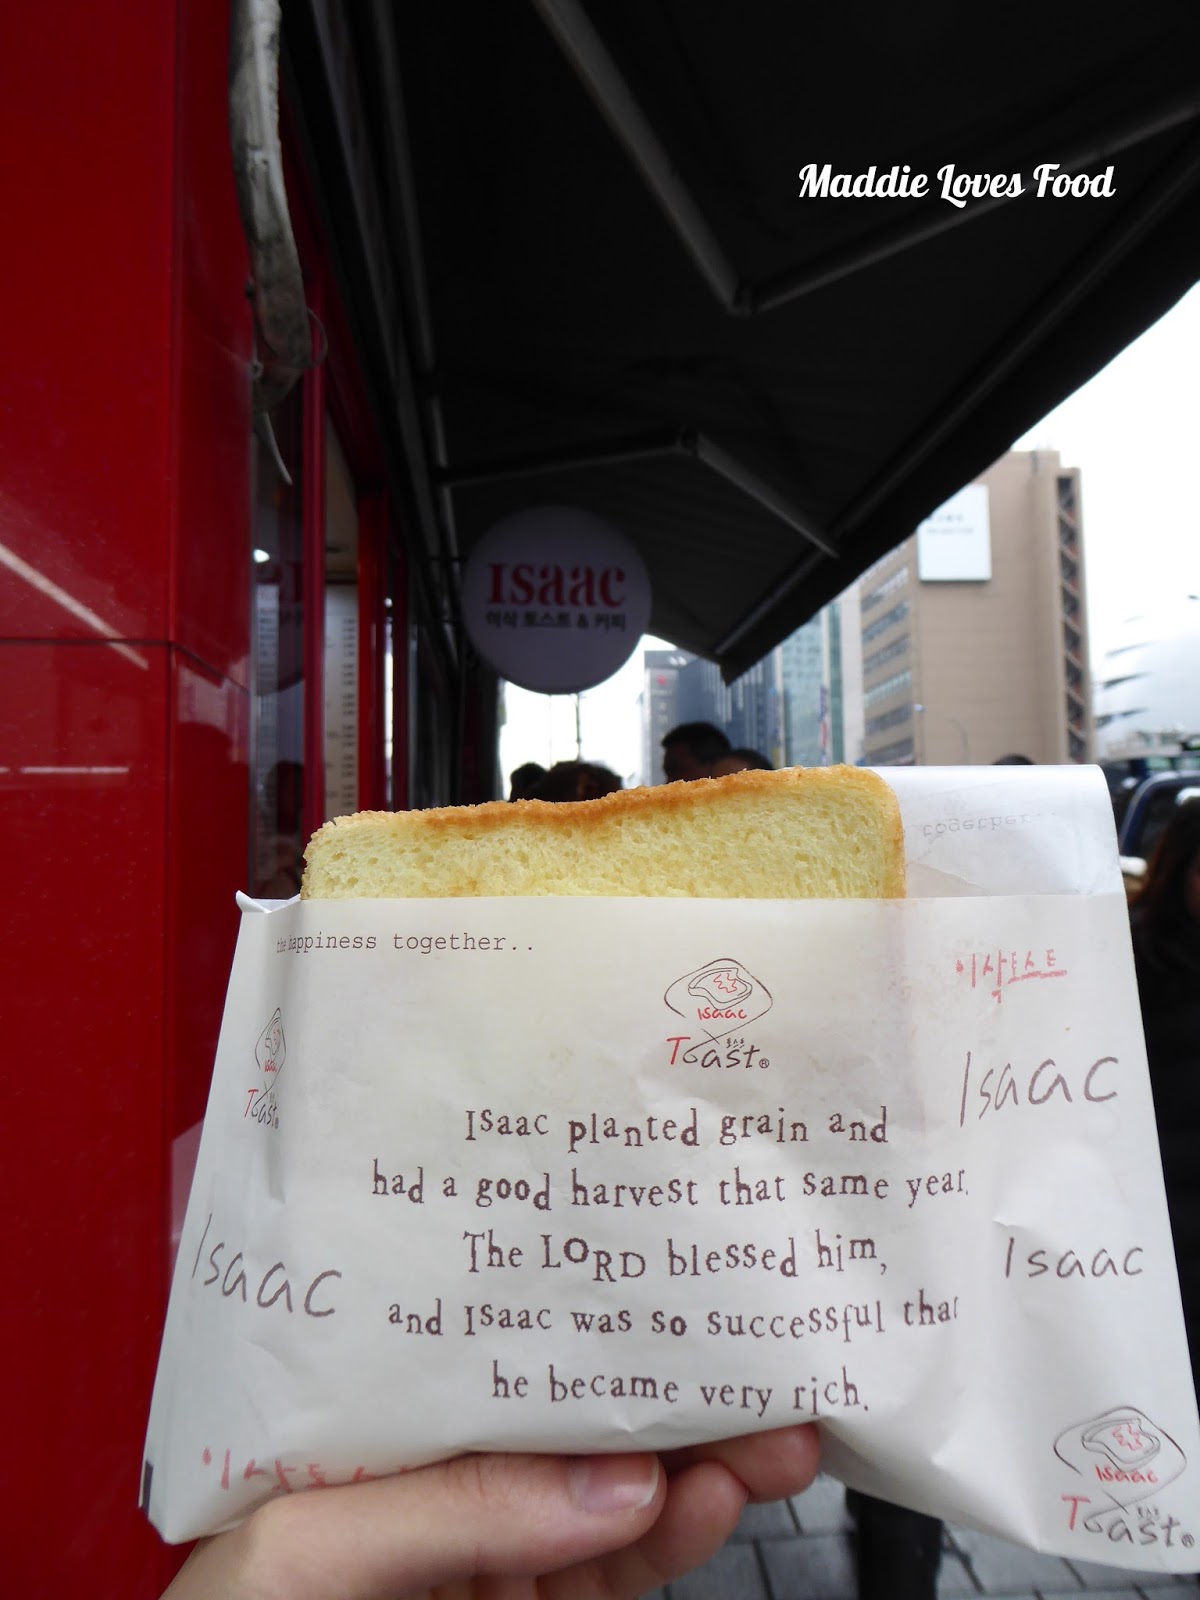 Maddie Loves Food
Isaac
이삭 토스트 & 커피
together..
the happiness together..
Isaac
토스트
Toast®
이삭토스트
Isaac
Isaac
Toast®
Isaac planted grain and
had a good harvest that same year.
The LORD blessed him,
and Isaac was so successful that
he became very rich.
Isaac
Isaac
이삭토스
Isaac
토스트
Toast®